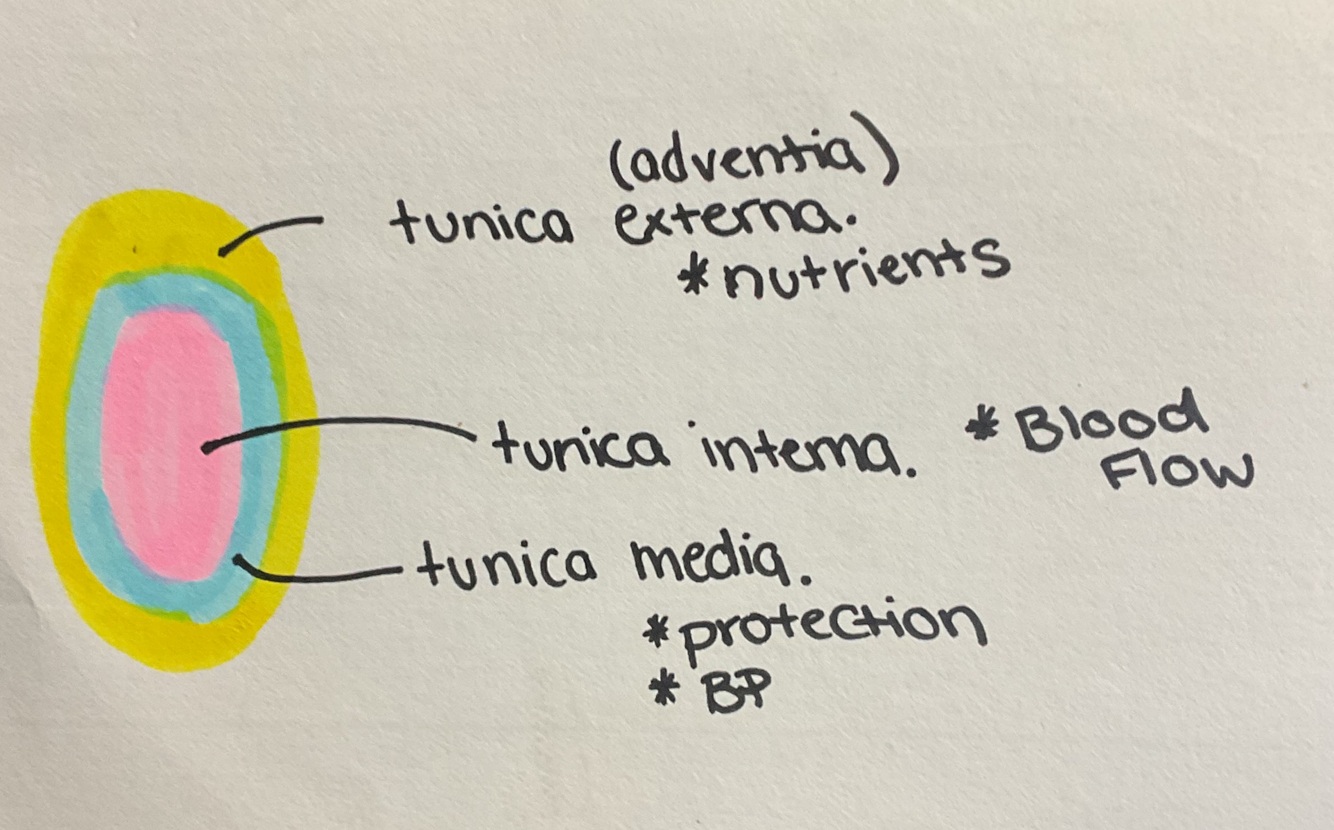 (adventia)
tunica externa.
*nutrients
tunica interna. * Blood
Flow
tunica media.
*protection
* BP